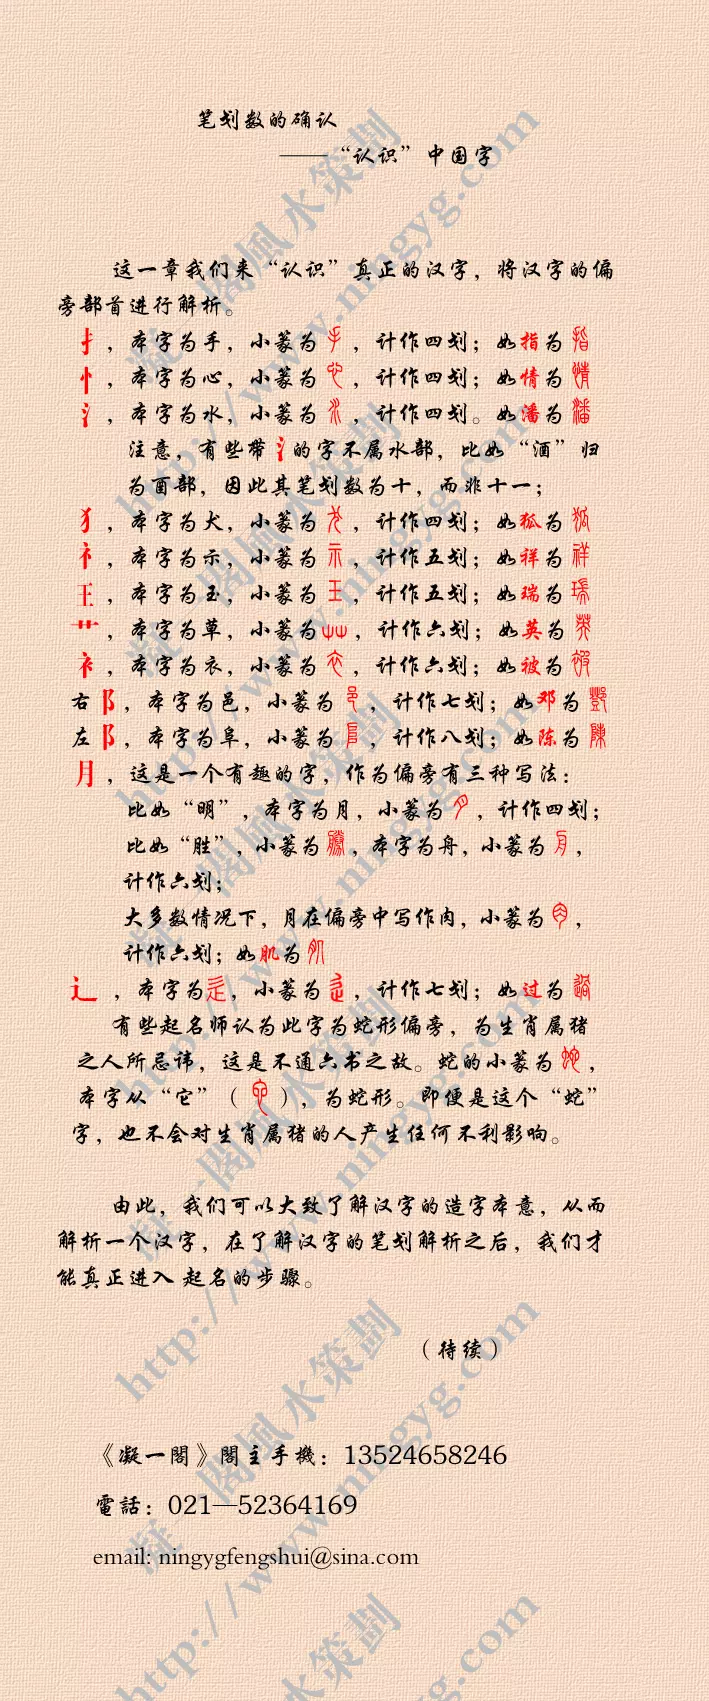 笔划数的确认
——“认识”中国字
这一章我们来“认识”真正的汉字，将汉字的偏
旁部首进行解析。
扌，本字为手，小篆为手，计作四划；如指为指
忄，本字为心，小篆为心，计作四划；如情为情
氵，本字为水，小篆为水，计作四划。如潘为潘
注意，有些带氵的字不属水部，比如“酒”归
为酉部，因此其笔划数为十，而非十一；
犭，本字为犬，小篆为犬，计作四划；如狐为狐
礻，本字为示，小篆为示，计作五划；如祥为祥
王，本字为玉，小篆为王，计作五划；如瑞为瑞
艹，本字为草，小篆为艸，计作六划；如英为英
衤，本字为衣，小篆为衣，计作六划；如被为被
右阝，本字为邑，小篆为邑，计作七划；如邓为鄧
左阝，本字为阜，小篆为𨸏，计作八划；如陈为陳
月，这是一个有趣的字，作为偏旁有三种写法：
比如“明”，本字为月，小篆为月，计作四划；
比如“胜”，小篆为勝，本字为舟，小篆为舟，
计作六划；
大多数情况下，月在偏旁中写作肉，小篆为肉，
计作六划；如肌为肌
辶，本字为辵，小篆为辵，计作七划；如过为過
有些起名师认为此字为蛇形偏旁，为生肖属猪
之人所忌讳，这是不通六书之故。蛇的小篆为蛇，
本字从“它”（它），为蛇形。即便是这个“蛇”
字，也不会对生肖属猪的人产生任何不利影响。
由此，我们可以大致了解汉字的造字本意，从而
解析一个汉字，在了解汉字的笔划解析之后，我们才
能真正进入 起名的步骤。
（待续）
《凝一閣》閣主手機：13524658246
電話：021—52364169
email: ningygfengshui@sina.com
凝一閣風水策劃
http://www.ningyg.com
凝一閣風水策劃
http://www.ningyg.com
凝一閣風水策劃
http://www.ningyg.com
凝一閣風水策劃
http://www.ningyg.com
凝一閣風水策劃
http://www.ningyg.com
風水策劃
http://www.ningyg.com